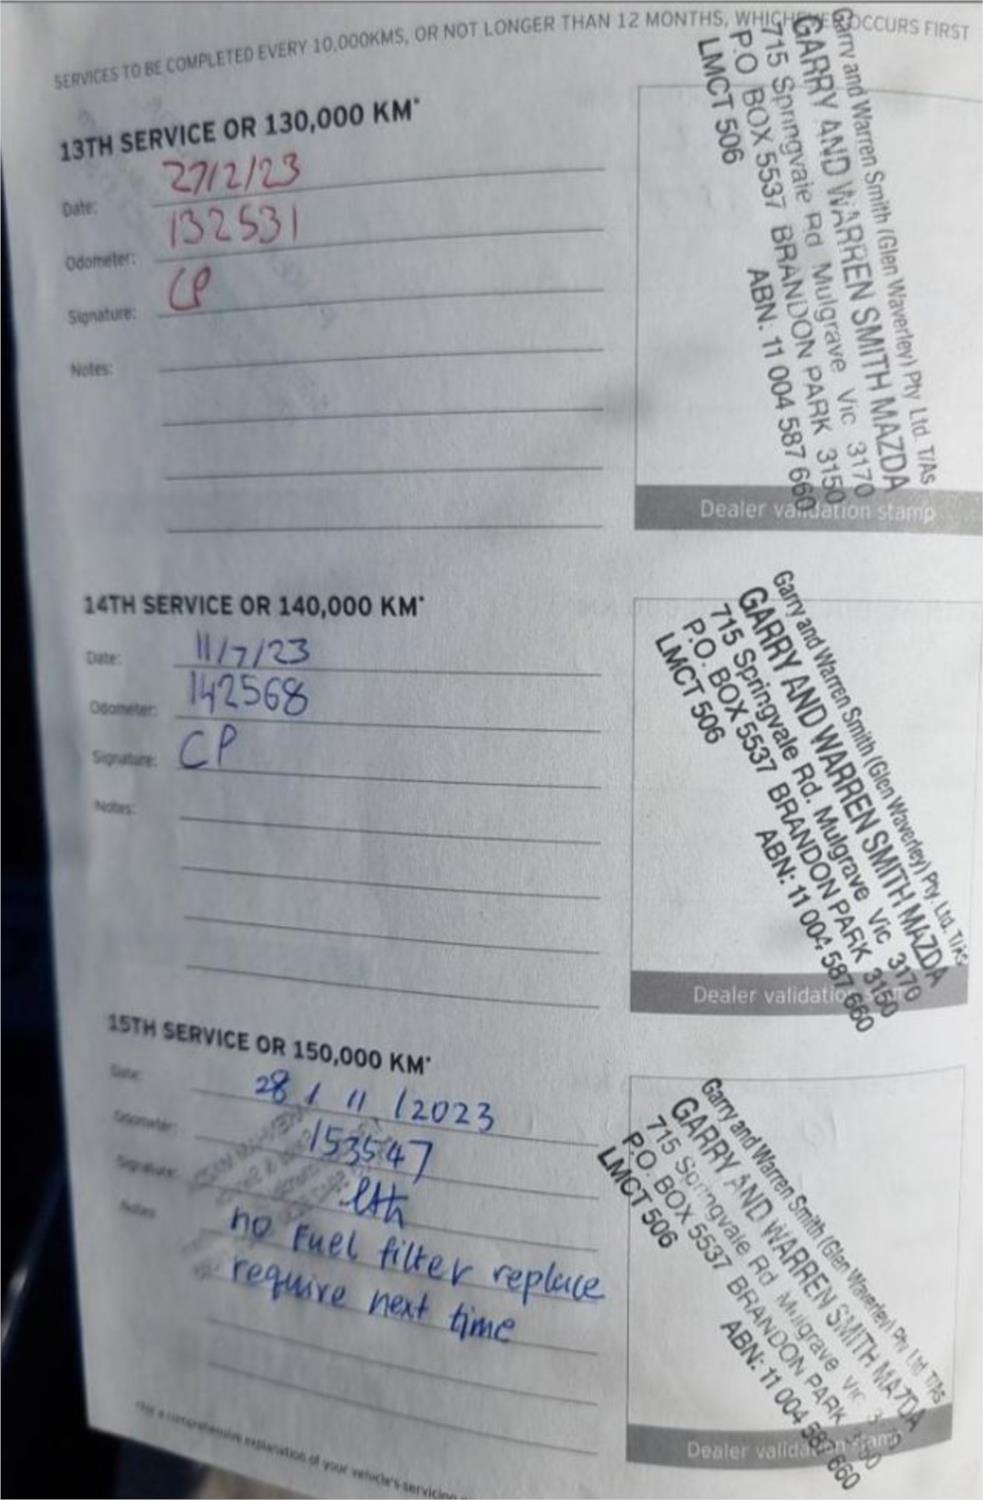 SERVICES TO BE COMPLETED EVERY 10,000KMS, OR NOT LONGER THAN 12 MONTHS, WHICHEVER OCCURS FIRST
13TH SERVICE OR 130,000 KM*
Date: 27/2/23
Odometer: 132531
Signature: CP
Notes:
Garry and Warren Smith (Glen Waverley) Pty Ltd. T/As
GARRY AND WARREN SMITH MAZDA
715 Springvale Rd Mulgrave Vic 3170
P.O BOX 5537 BRANDON PARK 3150
LMCT 506 ABN: 11 004 587 660
Dealer validation stamp
14TH SERVICE OR 140,000 KM*
Date: 11/7/23
Odometer: 142568
Signature: CP
Notes:
Garry and Warren Smith (Glen Waverley) Pty. Ltd. T/As
GARRY AND WARREN SMITH MAZDA
715 Springvale Rd. Mulgrave Vic 3170
P.O. BOX 5537 BRANDON PARK 3150
LMCT 506 ABN: 11 004 587 660
Dealer validation
15TH SERVICE OR 150,000 KM*
Date: 28 / 11 / 2023
Odometer: 153547
Signature:
Notes: no Fuel filter replace
require next time
Garry and Warren Smith (Glen Waverley) Pty Ltd T/As
GARRY AND WARREN SMITH MAZDA
715 Springvale Rd Mulgrave Vic
P.O. BOX 5537 BRANDON PARK
LMCT 506 ABN: 11 004 587 660
Dealer validation stamp
*For a comprehensive explanation of your vehicle's servicing